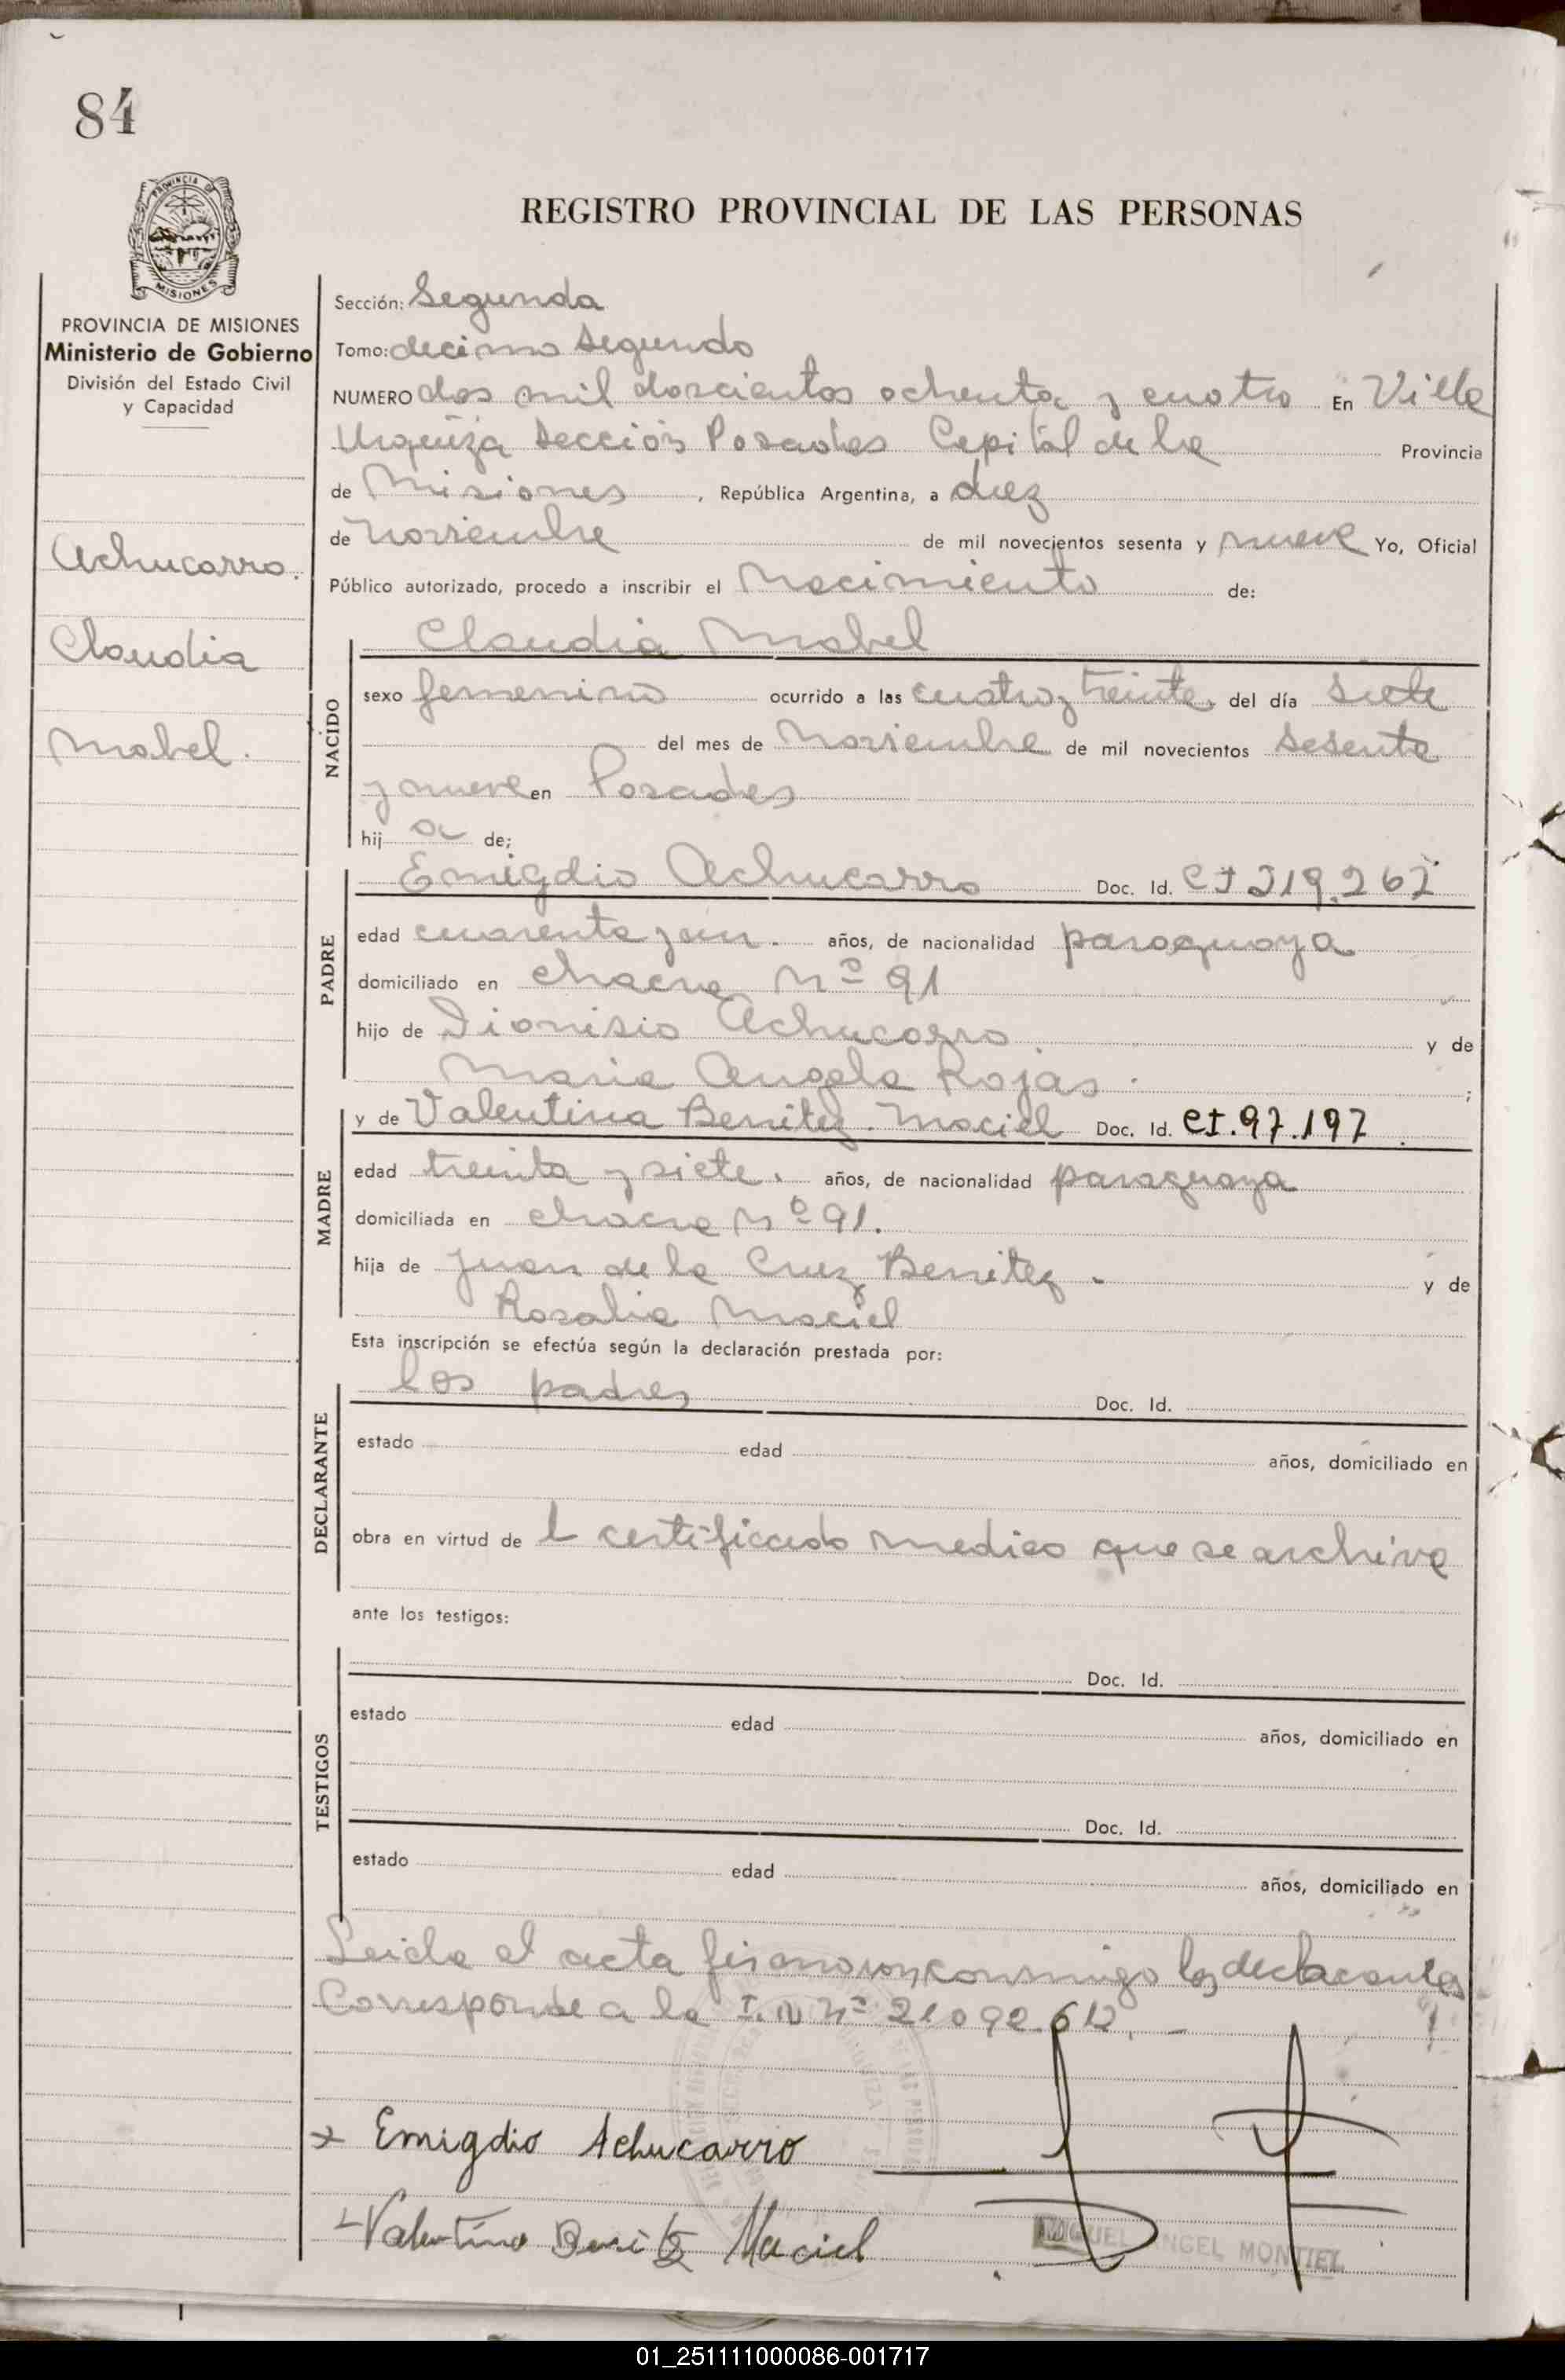 84
PROVINCIA DE
MISIONES
REGISTRO PROVINCIAL DE LAS PERSONAS
PROVINCIA DE MISIONES
Ministerio de Gobierno
División del Estado Civil
y Capacidad
Achucarro.
Claudia
Mabel.
Sección: Segunda
Tomo: decimo segundo
NUMERO dos mil doscientos ochenta y cuatro En Villa
Urquiza Sección Posadas Capital de la Provincia
de Misiones, República Argentina, a diez
de noviembre de mil novecientos sesenta y nueve Yo, Oficial
Público autorizado, procedo a inscribir el Nacimiento de:
NACIDO
Claudia Mabel
sexo femenino ocurrido a las cuatro y treinta del día siete
del mes de Noviembre de mil novecientos sesenta
y nueve en Posadas
hij a de;
PADRE
Emigdio Achucarro Doc. Id. CI 219.267
edad cuarenta y un. años, de nacionalidad paraguaya
domiciliado en chacra Nº 91
hijo de Dionisio Achucarro. y de
Maria Angela Rojas. ;
MADRE
y de Valentina Benitez. Maciel Doc. Id. CI. 97.197.
edad treinta y siete. años, de nacionalidad paraguaya
domiciliada en chacra Nº 91.
hija de Juan de la Cruz Benitez. y de
Rosalia Maciel
Esta inscripción se efectúa según la declaración prestada por:
DECLARANTE
los padres Doc. Id.
estado edad años, domiciliado en
obra en virtud de l certificado medico que se archiva
ante los testigos:
TESTIGOS
Doc. Id.
estado edad años, domiciliado en
Doc. Id.
estado edad años, domiciliado en
Leida el acta firmaron conmigo los declarantes
Corresponde a la I.N Nº 21092.612. -
x Emigdio Achucarro
Valentina Benitez Maciel
MIGUEL ANGEL MONTIEL
01_251111000086-001717